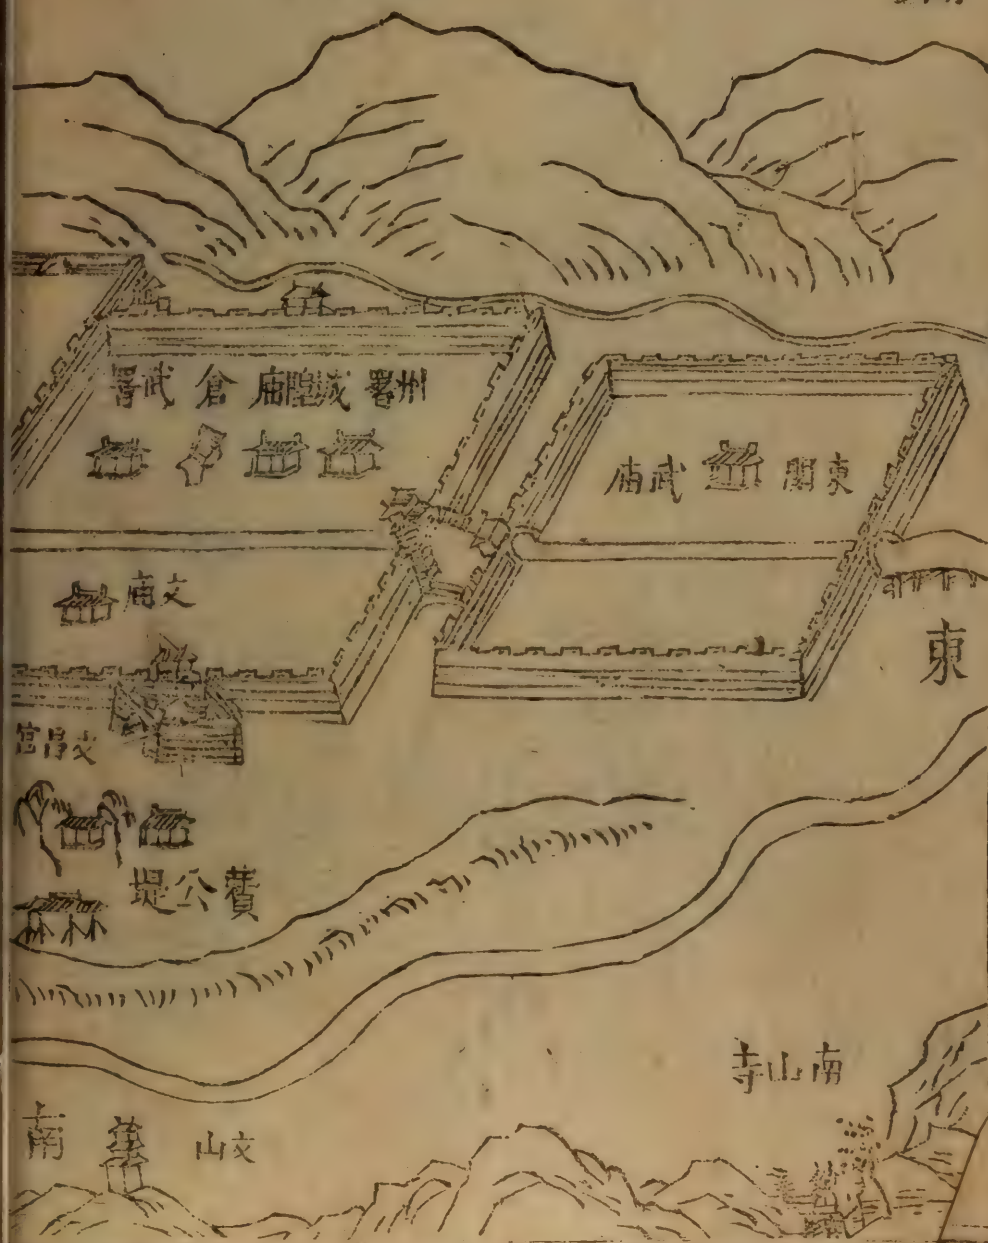 州署
城隍廟
倉
武署
東關
武廟
文廟
東
文昌宮
費公堤
南山寺
文山
南